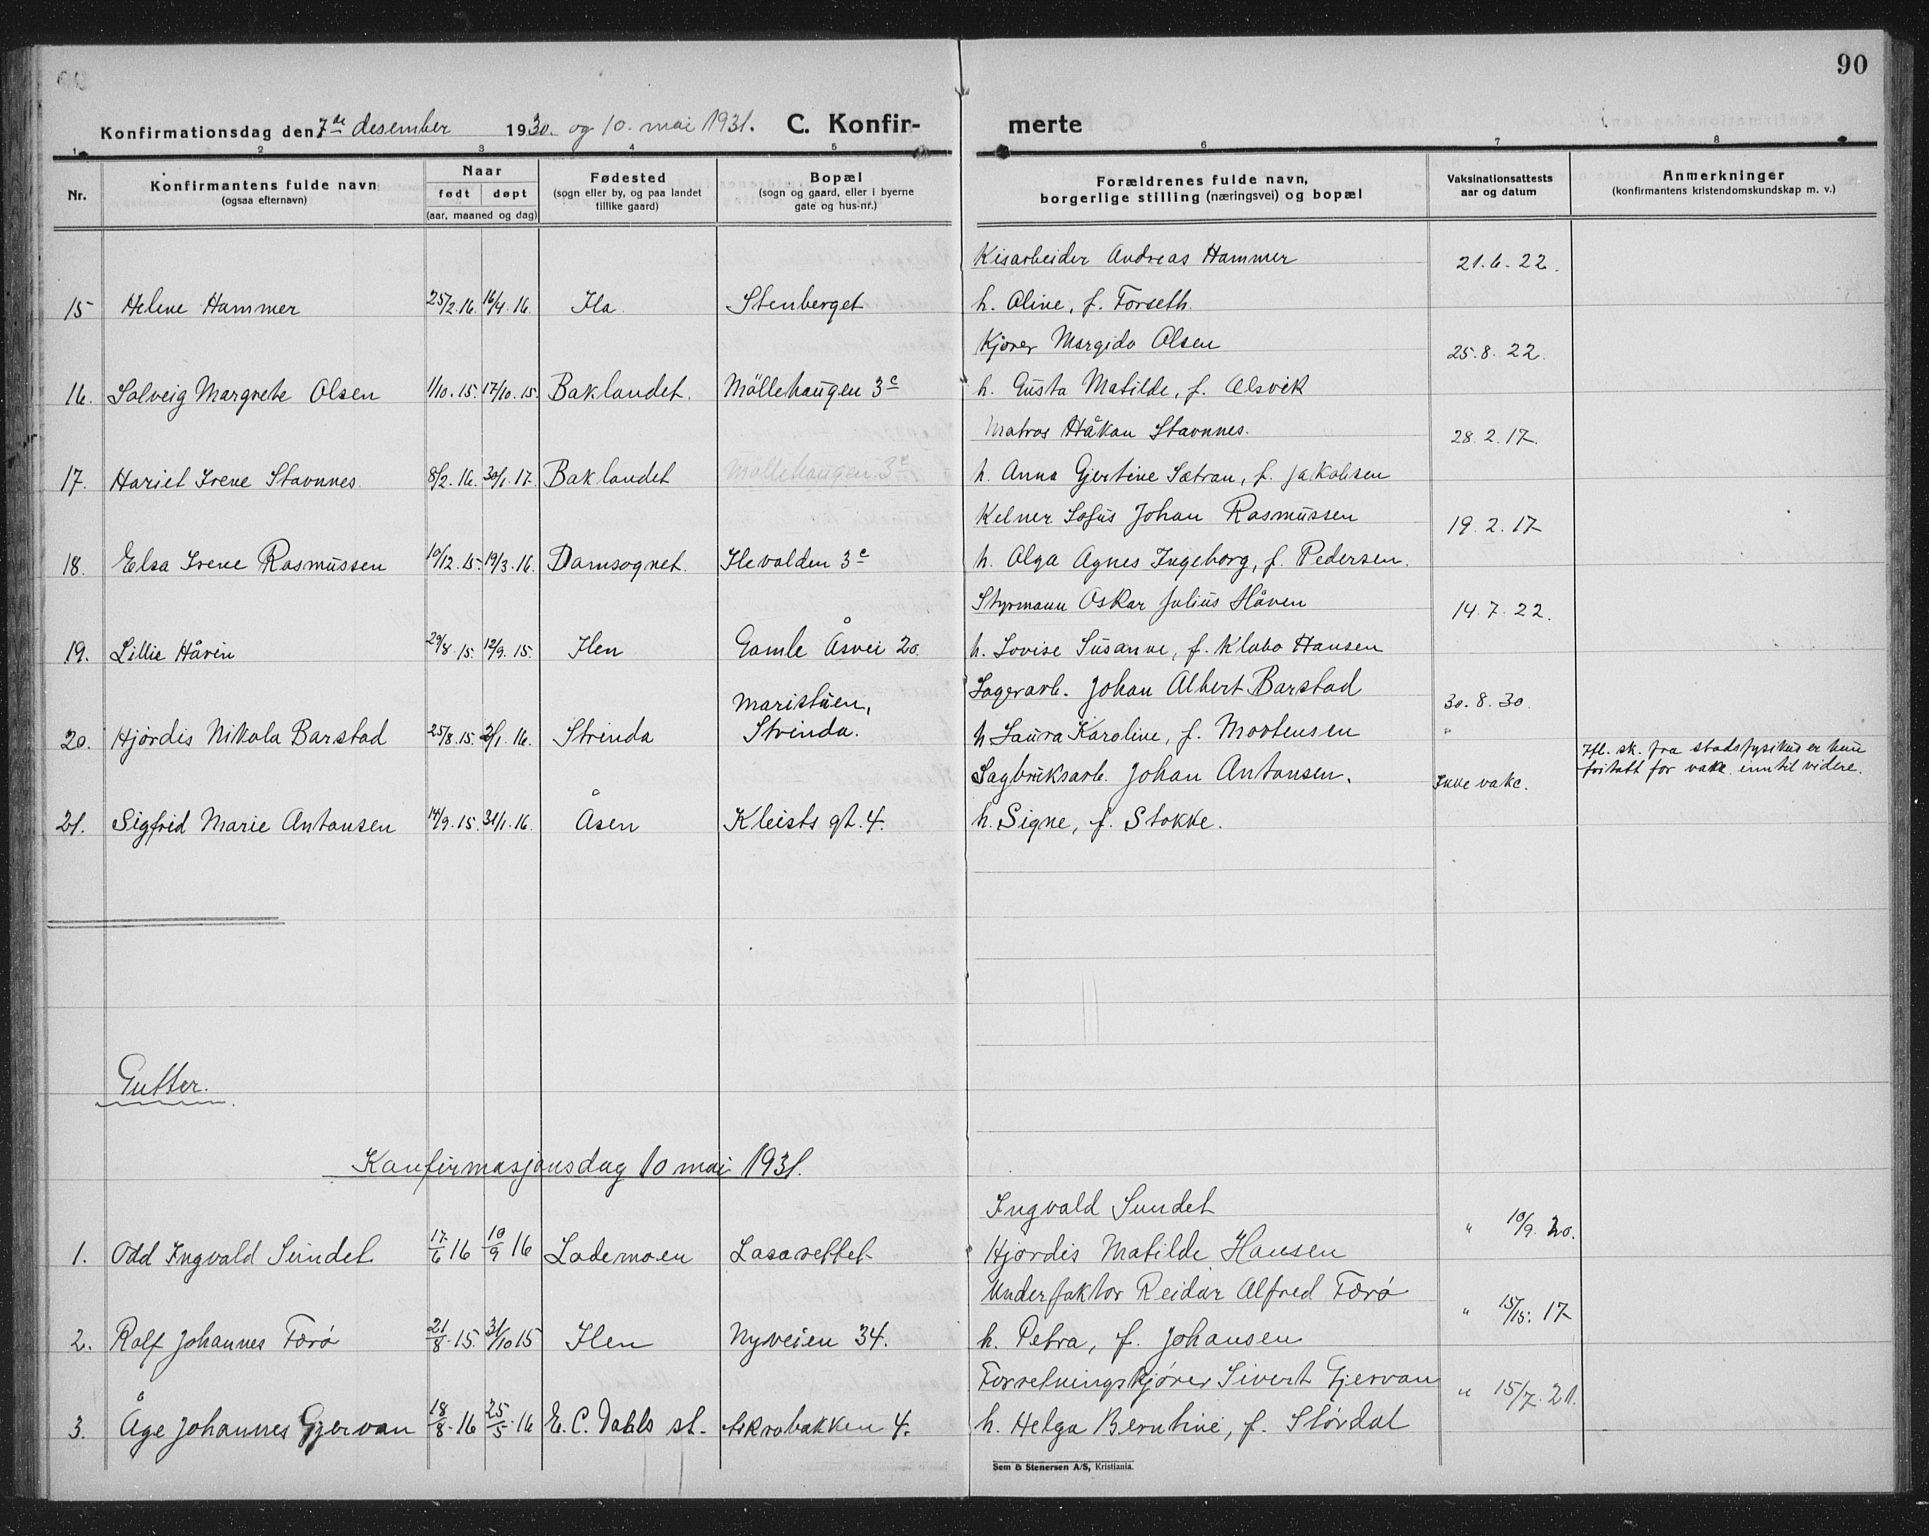 90
Konfirmationsdag den 7de desember 1930. og 10. mai 1931. C. Konfir- merte
1 2 3 4 5 6 7 8
Nr.
Konfirmantens fulde navn
(ogsaa efternavn)
Naar
født døpt
(aar, maaned og dag)
Fødested
(sogn eller by, og paa landet
tillike gaard)
Bopæl
(sogn og gaard, eller i byerne
gate og hus-nr.)
Forældrenes fulde navn,
borgerlige stilling (næringsvei) og bopæl
Vaksinationsattests
aar og datum
Anmerkninger
(konfirmantens kristendomskundskap m. v.)
Kisarbeider Andreas Hammer 21.6.22.
15 Helene Hammer 25/2.16. 16/4.16. Ila Stenberget h. Oline, f. Forseth.
Kjører Margido Olsen 25.8.22.
16. Solveig Margrete Olsen 1/10.15. 17/10.15. Baklandet. Möllehaugen 3c h. Gusta Matilde, f. Alsvik
Matros Håkon Stavnnes. 28.2.17.
17. Hariet Irene Stavnnes. 8/2.16. 30/1.17. Baklandet Möllehaugen 3c h. Anna Gjertine Sætran, f. Jakobsen
Kelner Sofus Johan Rasmussen 19.2.17
18. Elsa Irene Rasmussen 10/12.15. 19/3.16. Domsognet. Ilevolden 3c h. Olga Agnes Ingeborg, f. Pedersen.
Styrmann Oskar Julius Håven 14.7.22.
19. Lillie Håvin 29/8.15. 12/9.15. Ilen Gamle Åsvei 20. h. Lovise Susanne, f. Klabo Hansen
Lagerarb. Johan Albert Barstad 30.8.30.
20. Hjördis Nikola Barstad 25/8.15. 2/1.16. Strinda Maristuen,
Strinda. h. Laura Karoline, f. Mortensen "
Sagbruksarb. Johan Antonsen. Ikke vakc. Ifl. sk. fra stadsfysikus er hun
fritatt for vakc. inntil videre.
21. Sigfrid Marie Antonsen 14/9.15. 31/1.16. Åsen Kleists gt. 4. h. Signe, f. Stokke.
Gutter.
Konfirmasjonsdag 10 mai 1931.
Ingvald Sundet " 10/9.20.
1. Odd Ingvald Sundet 17/6 16 10/9 16 Lademoen Lasarettet Hjördis Matilde Hansen
Underfaktor Reidar Alfred Færø " 15/15.17
2. Rolf Johannes Færö 21/8.15. 31/10 15 Ilen Nyveien 34. h. Petra, f. Johansen
Forretningskjører Sivert Gjervan " 15/7.21.
3. Åge Johannes Gjervan 18/8.16 25/5.16 E. C. Dahls st. Askrabakken 4. h. Helga Berntine, f. Stördal
Sem & Stenersen A/S, Kristiania.